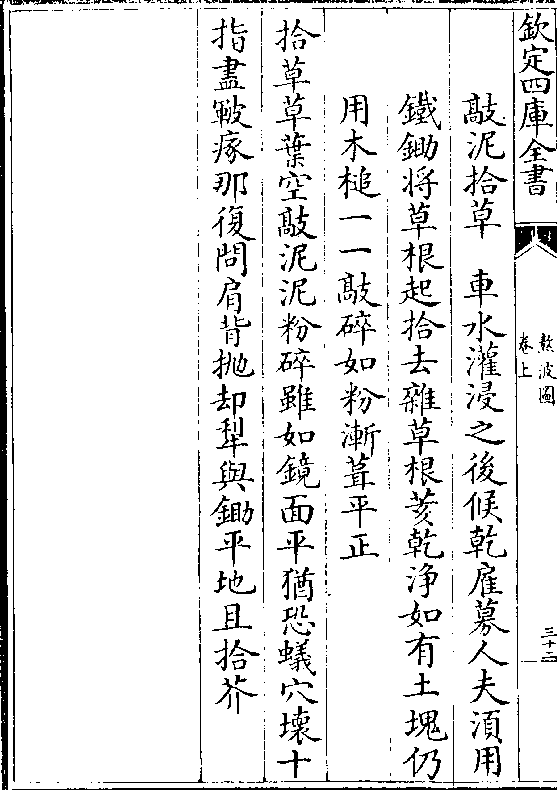 欽定四庫全書
熬波圖
卷上
三十二
敲泥拾草　車水灌浸之後候乾雇募人夫湏用
鐵鋤将草根起拾去雜草根荄乾浄如有土塊仍
用木槌一一敲碎如粉漸葺平正
拾草草葉空敲泥泥粉碎雖如鏡面平猶恐蟻穴壊十
指盡皸瘃那復問肩背抛却犁與鋤平地且拾芥